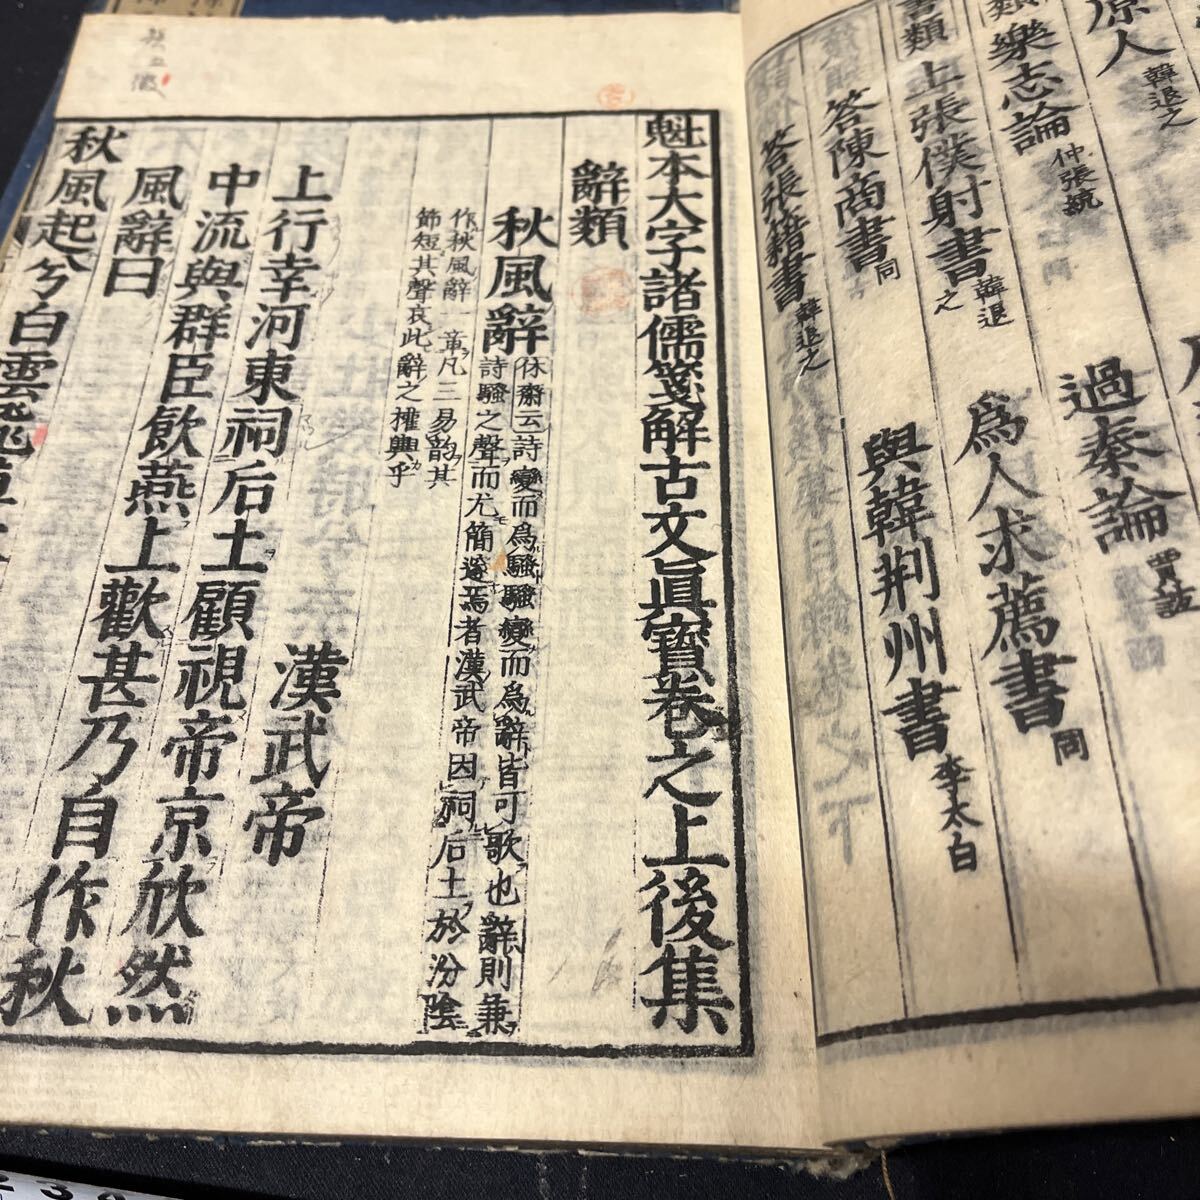 原人 韓退之
過秦論 賈誼
類樂志論 仲張統
爲人求薦書 同
書類上張僕射書 韓退之
與韓荆州書 李太白
答陳商書 同
答張籍書 韓退之
魁本大字諸儒箋解古文眞寶卷之上後集
辭類
秋風辭 休齋云詩變而爲騷騷變而爲辭皆可歌也辭則兼
詩騷之聲而尤簡邃焉者漢武帝因祠后土於汾陰
作秋風辭一章凡三易韵其
節短其聲哀此辭之權輿乎
漢武帝
上行幸河東祠后土顧視帝京欣然
中流與群臣飮燕上歡甚乃自作秋
風辭曰
秋風起兮白雲飛